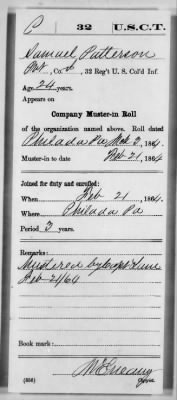 C 32 U.S.C.T.
Samuel Patterson
Pvt, Co. , 32 Reg't U. S. Col'd Inf.
Age 24 years.
Appears on
Company Muster-in Roll
of the organization named above. Roll dated
Philada Pa Mch 3, 1864.
Muster-in to date Feb 21, 1864.
Joined for duty and enrolled:
When Feb 21, 1864.
Where Philada Pa
Period 3 years.
Remarks:
Mustered by Capt Lane
Feb 21/64
Book mark:
(356) Copyist.